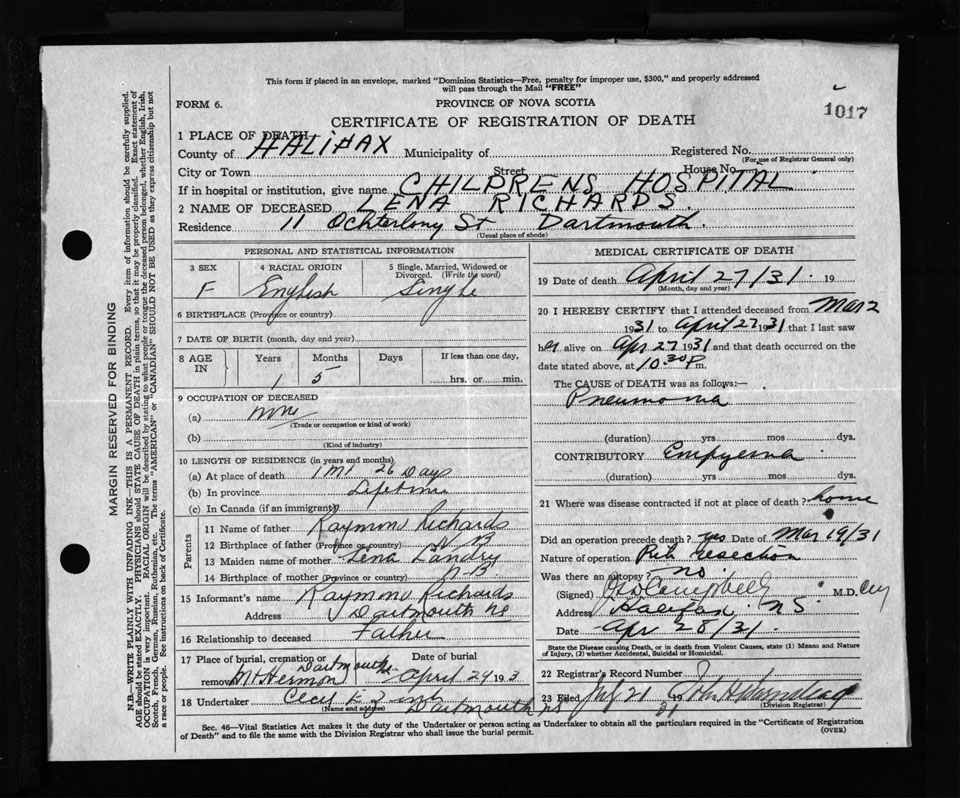 This form if placed in an envelope, marked "Dominion Statistics—Free, penalty for improper use, $300," and properly addressed
will pass through the Mail "FREE"
FORM 6.
PROVINCE OF NOVA SCOTIA
1017
CERTIFICATE OF REGISTRATION OF DEATH
1 PLACE OF DEATH
County of HALIFAX Municipality of Registered No.
(For use of Registrar General only)
City or Town Street House No.
If in hospital or institution, give name CHILDRENS HOSPITAL
2 NAME OF DECEASED LENA RICHARDS.
Residence 11 Ochterlony St Dartmouth.
(Usual place of abode)
PERSONAL AND STATISTICAL INFORMATION
3 SEX 4 RACIAL ORIGIN 5 Single, Married, Widowed or
Divorced. (Write the word)
F English Single
6 BIRTHPLACE (Province or country)
7 DATE OF BIRTH (month, day and year)
8 AGE IN Years Months Days If less than one day,
1 5 hrs. or min.
9 OCCUPATION OF DECEASED
(a) none
(Trade or occupation or kind of work)
(b)
(Kind of industry)
10 LENGTH OF RESIDENCE (in years and months)
(a) At place of death 1 Mt 26 Days
(b) In province Lifetime
(c) In Canada (if an immigrant)
Parents
11 Name of father Raymon Richards
12 Birthplace of father (Province or country) N B
13 Maiden name of mother Lena Landry
14 Birthplace of mother (Province or country) N.B.
15 Informant's name Raymon Richards
Address Dartmouth NS
16 Relationship to deceased Father
17 Place of burial, cremation or removal Mt Hermon Dartmouth Date of burial April 29 193
18 Undertaker Cecil E Dartmouth NS
(Name and address)
MEDICAL CERTIFICATE OF DEATH
19 Date of death April 27/31 19
(Month, day and year)
20 I HEREBY CERTIFY that I attended deceased from Mar 2
1931 to April 27 1931 that I last saw
her alive on Apr 27 1931 and that death occurred on the
date stated above, at 10.30 P m.
The CAUSE OF DEATH was as follows:—
Pneumonia
(duration) yrs mos dys.
CONTRIBUTORY Empyema
(duration) yrs mos dys.
21 Where was disease contracted if not at place of death? home
Did an operation precede death? yes Date of Mar 19/31
Nature of operation Rib resection
Was there an autopsy? no.
(Signed) Campbell M.D.
Address Halifax. NS.
Date Apr 28/31.
State the Disease causing Death, or in death from Violent Causes, state (1) Means and Nature
of Injury, (2) whether Accidental, Suicidal or Homicidal.
22 Registrar's Record Number
23 Filed 21 19 31 John
(Division Registrar)
Sec. 46—Vital Statistics Act makes it the duty of the Undertaker or person acting as Undertaker to obtain all the particulars required in the "Certificate of Registration
of Death" and to file the same with the Division Registrar who shall issue the burial permit.
(OVER)
MARGIN RESERVED FOR BINDING
N.B.—WRITE PLAINLY WITH UNFADING INK—THIS IS A PERMANENT RECORD. Every item of information should be carefully supplied.
AGE should be stated EXACTLY. PHYSICIANS should STATE CAUSE OF DEATH in plain terms, so that it may be properly classified. Exact statement of
OCCUPATION is very important. RACIAL ORIGIN will be described by stating to what people or tongue the deceased person belonged, whether English, Irish,
Scotch, French, German, Russian, Ruthenian, etc. The terms "AMERICAN" or "CANADIAN" SHOULD NOT BE USED as they express citizenship but not
a race or people. See instructions on back of Certificate.